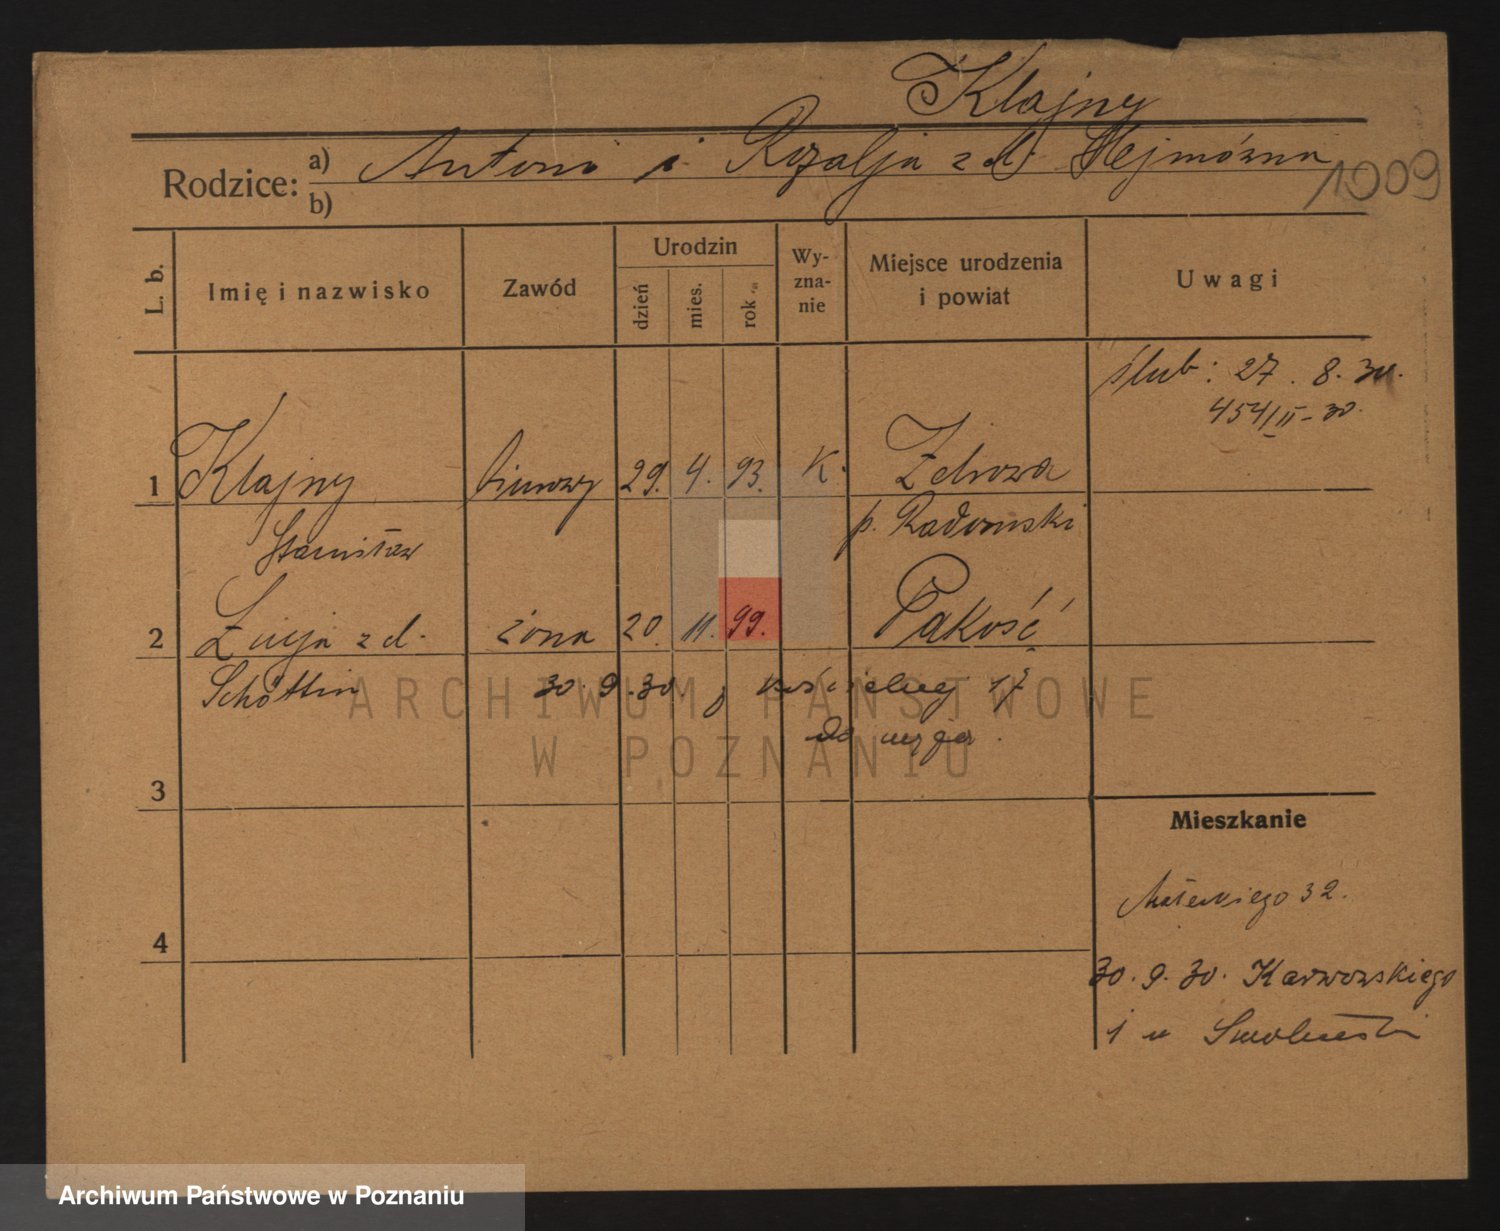 Klajny
Rodzice: a) Antoni i Rozalja z d. Hejmówna
b)
1009
L. b.
Imię i nazwisko
Zawód
Urodzin
dzień
mies.
rok
Wy-
zna-
nie
Miejsce urodzenia
i powiat
Uwagi
ślub: 27. 8. 30.
454/II-30.
1 Klajny biurowy 29. 4. 93. K.
Stanisław p. Radomski
2 Łucja z d. żona 20. 11. 99. Pakość
Schöttin 30. 9. 30. kościelnej 17
do męża.
3
4
Mieszkanie
Małeckiego 32.
30. 9. 30. Karwowskiego
1 u
ARCHIWUM PAŃSTWOWE
W POZNANIU
Archiwum Państwowe w Poznaniu